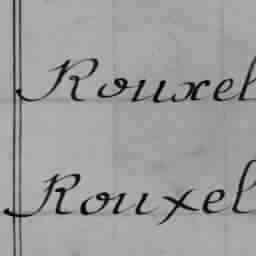 Rouxel
Rouxel